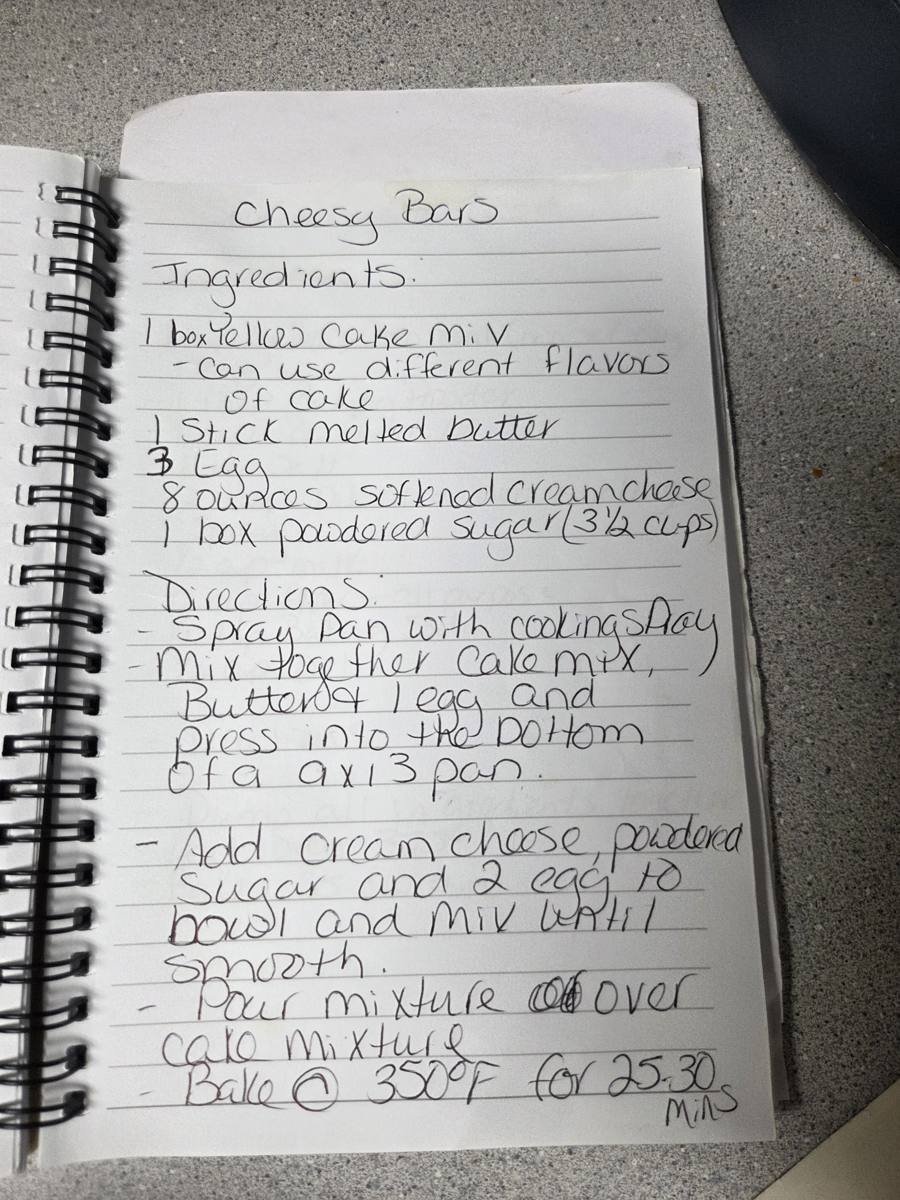 Cheesy Bars
Ingredients.
1 box Yellow Cake Mix
- Can use different flavors
of cake
1 Stick melted butter
3 Egg
8 ounces softened creamcheese
1 box powdered sugar (3½ cups)
Directions:
- Spray pan with cooking spray
- Mix together Cake mix,
Butter & 1 egg and
press into the bottom
of a 9x13 pan.
- Add cream cheese, powdered
Sugar and 2 egg to
bowl and mix until
smooth.
- Pour mixture over
cake mixture
- Bake @ 350°F for 25-30
Mins